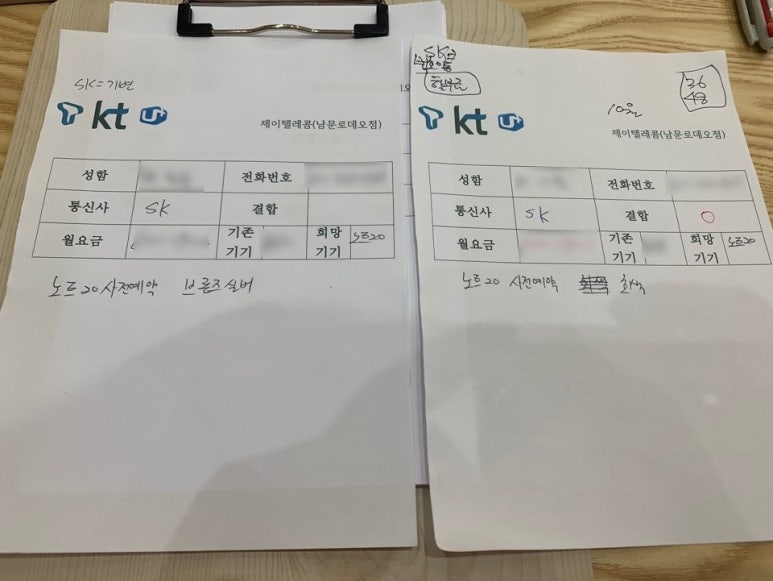 SK=기변
T kt U+
제이텔레콤(남문로데오점)
성함 전화번호
통신사 SK 결합
월요금 기존기기 희망기기 노트20
노트20 사전예약 브론즈실버
SK로
할부금
36
48
10월
T kt U+
제이텔레콤(남문로데오점)
성함 전화번호
통신사 SK 결합 ○
월요금 기존기기 희망기기 노트20
노트20 사전예약 회색